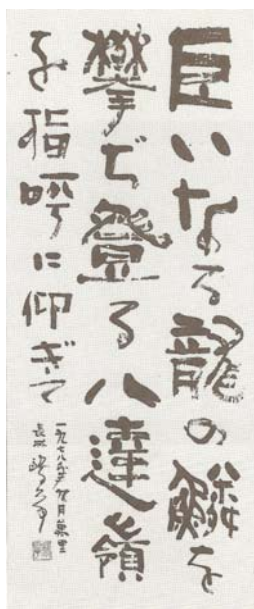 巨いなる龍の鱗を
攀ぢ登る八達嶺
を指呼に仰ぎて
一九七八年